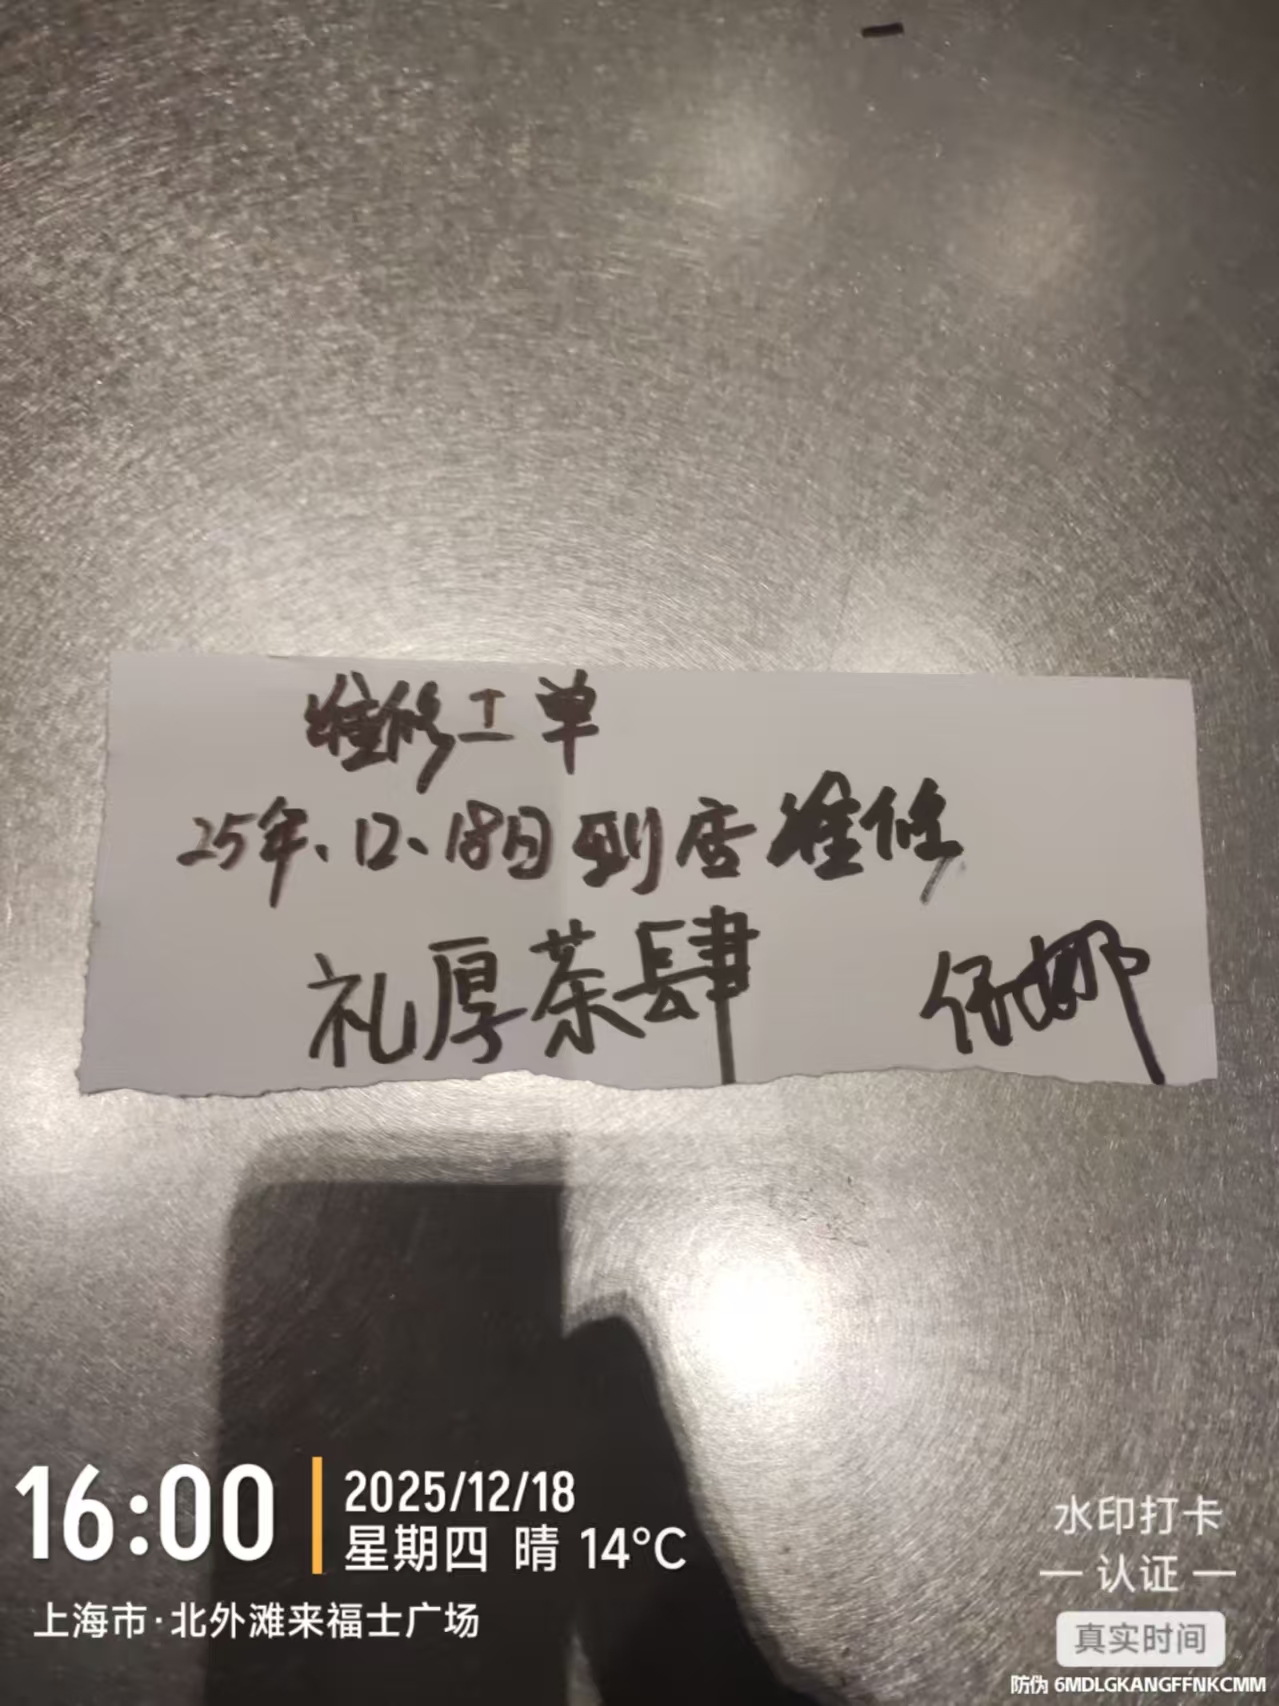 维修工单
25年、12、18日到店维修
礼厚茶肆
16:00
2025/12/18
星期四 晴 14°C
上海市·北外滩来福士广场
水印打卡
认证
真实时间
防伪 6MDLGKANGFFNKCMM